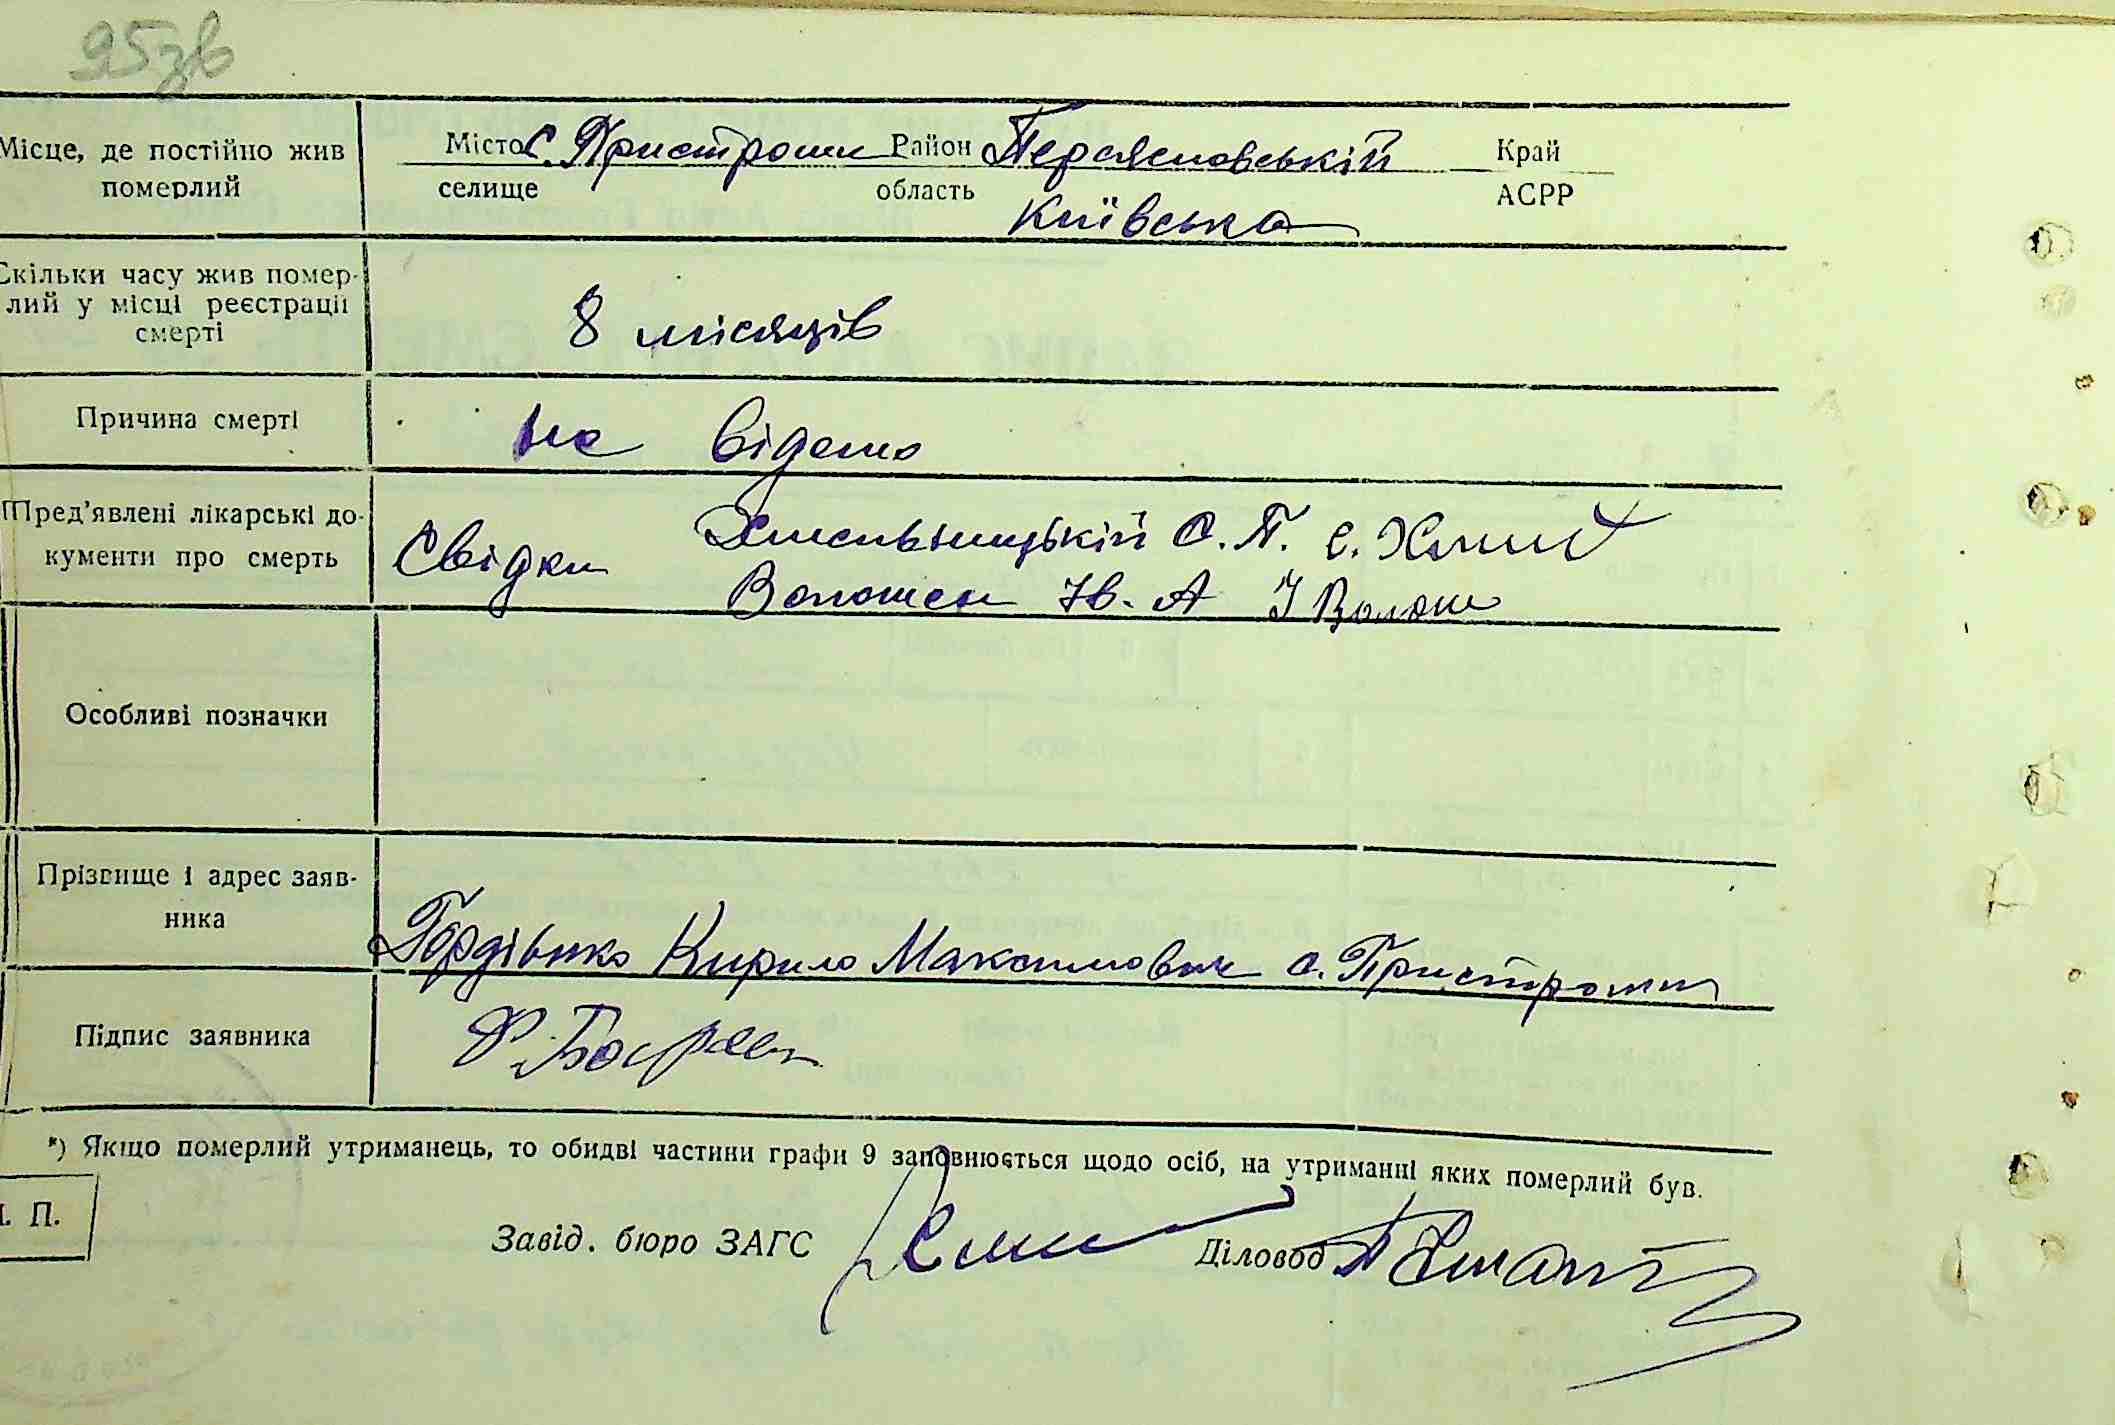 95зв
Місце, де постійно жив
померлий
Місто с. Пристроми Район Переяславській Край
селище область АСРР
Київська
Скільки часу жив помер-
лий у місці реєстрації
смерті
8 місяців
Причина смерті
не відомо
Пред'явлені лікарські до-
кументи про смерть
Свідки Хмельницькій О. П. с.
Волошен Ів. А І Волош
Особливі позначки
Прізвище і адрес заяв-
ника
Гордієнко Кирило Максимович с. Пристроми
Підпис заявника
*) Якщо померлий утриманець, то обидві частини графи 9 заповнюється щодо осіб, на утриманні яких померлий був.
М. П.
Завід. бюро ЗАГС Діловод